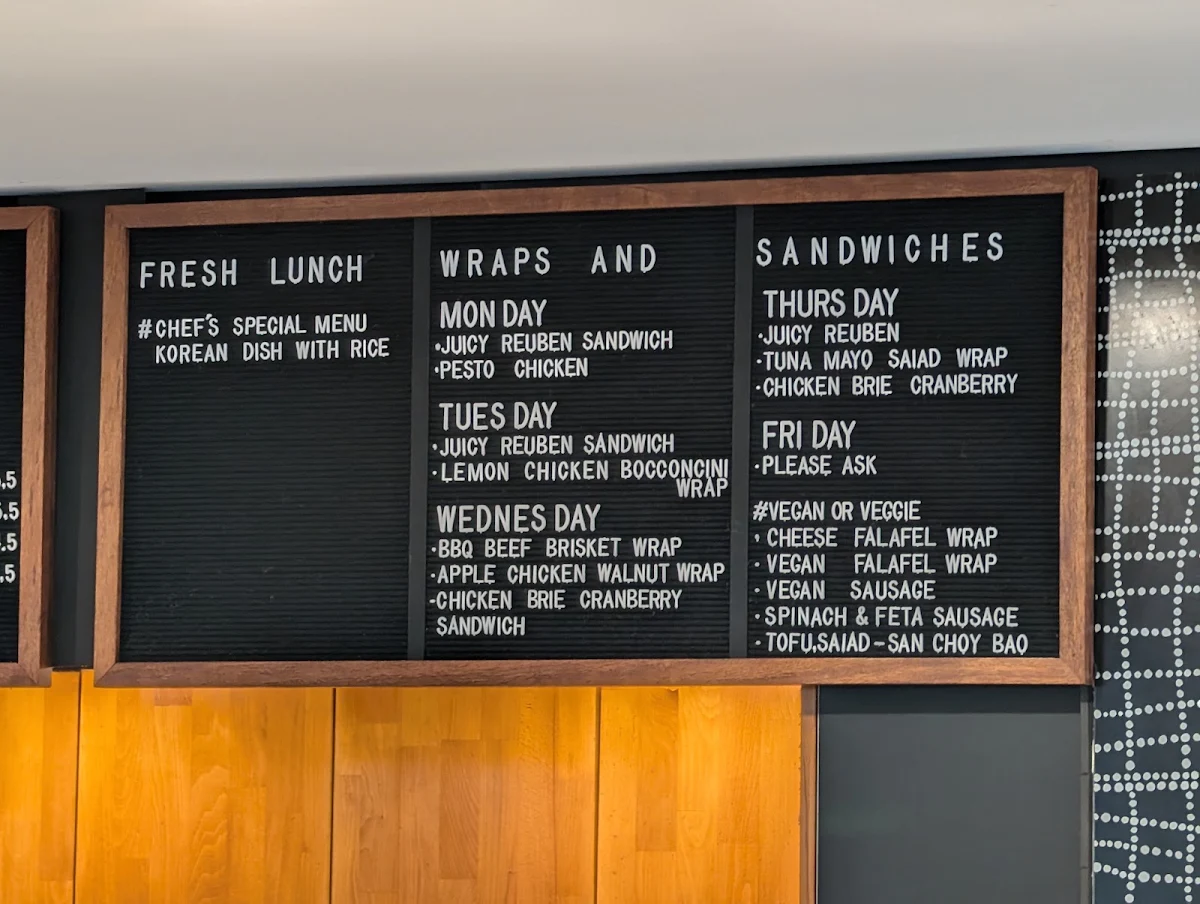 .5
.5
.5
.5
FRESH LUNCH
#CHEF'S SPECIAL MENU
KOREAN DISH WITH RICE
WRAPS AND
MONDAY
·JUICY REUBEN SANDWICH
·PESTO CHICKEN
TUESDAY
·JUICY REUBEN SANDWICH
·LEMON CHICKEN BOCCONCINI
WRAP
WEDNESDAY
·BBQ BEEF BRISKET WRAP
·APPLE CHICKEN WALNUT WRAP
·CHICKEN BRIE CRANBERRY
SANDWICH
SANDWICHES
THURSDAY
·JUICY REUBEN
·TUNA MAYO SAIAD WRAP
·CHICKEN BRIE CRANBERRY
FRIDAY
·PLEASE ASK
#VEGAN OR VEGGIE
· CHEESE FALAFEL WRAP
· VEGAN FALAFEL WRAP
· VEGAN SAUSAGE
· SPINACH & FETA SAUSAGE
· TOFU.SAIAD-SAN CHOY BAO